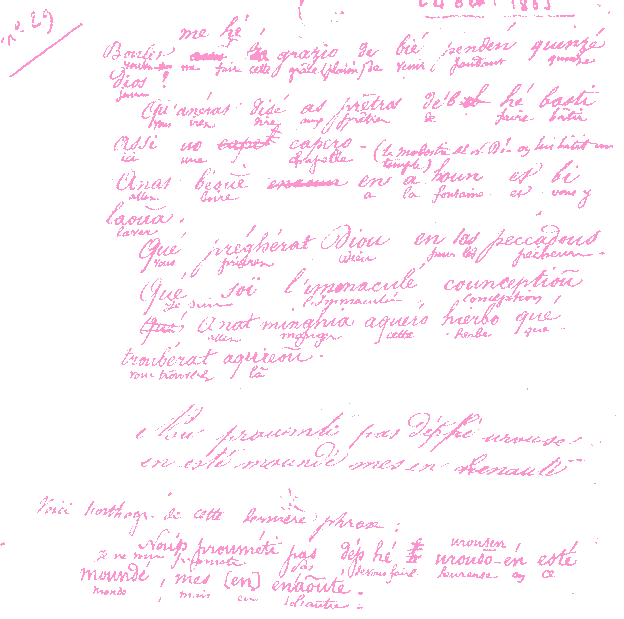 n° 29
me hé
Boulet la grazio de bié penden quinzé
me faire cette grâce (plaisir) de venir pendant quinze
Dios ?
jours
Qu'anéras disé as prêtros dé hé basti
vous irez dire aux prêtres de faire bâtir
assi uo capéro
ici une chapelle
Anas bequé en a houn es bi
allez boire à la fontaine et vous y
laoua.
laver
Qué préghérat Diou en las peccadous
vous prierez Dieu pour les pécheurs.
Qué soï l'immaculé counceptioũ
je suis l'immaculée conception
Anat minghia aquero hierbo qué
allez manger cette herbe que
troubérat aquieoũ.
vous trouverez là
Nou proumeti pas déphé urouso
en esté moundé mes en
Voici l'orthogr. de cette dernière phrase :
urousen
prouméti pas dép hé urouso-én esté
je ne vous promets pas faire heureuse en ce
moundé, mes [en] enaoute.
monde, mais en l'autre.